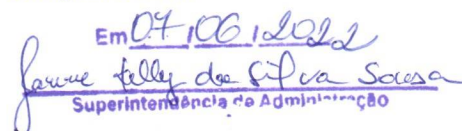 Em 07/06/2022
Janine Kelly da Silva Sousa
Superintendência de Administração